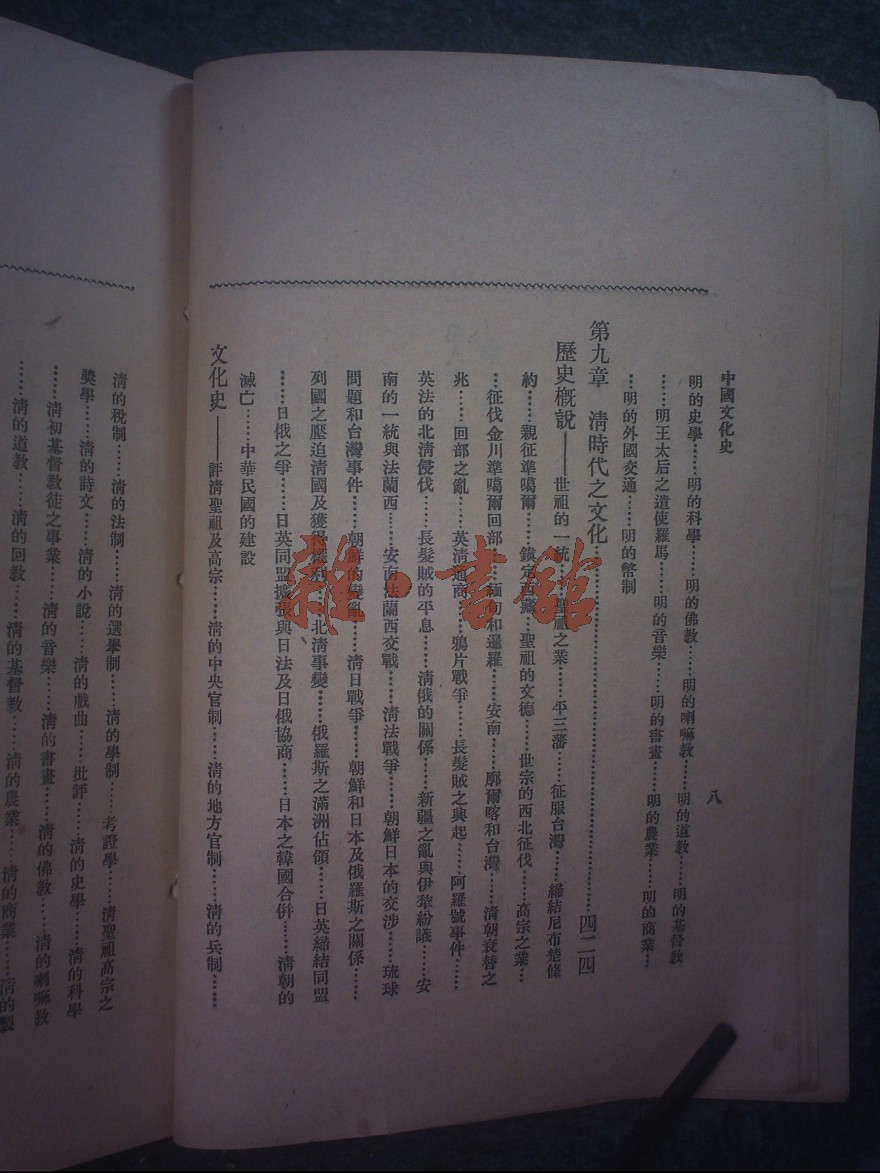 中國文化史
八
明的史學……明的科學……明的佛教……明的喇嘛教……明的道教……明的基督教
……明王太后之遣使羅馬……明的音樂……明的書畫……明的農業……明的商業……
明的外國交通……明的幣制
第九章 清時代之文化……四二四
歷史概說——世祖的一統……聖祖之業……平三藩……征服台灣……締結尼布楚條
約……親征準噶爾……鎮定西藏……聖祖的文德……世宗的西北征伐……高宗之業…
…征伐金川準噶爾回部……緬甸和暹羅……安南……廓爾喀和台灣……清朝衰替之
兆……回部之亂……英清通商……鴉片戰爭……長髮賊之興起……阿羅號事件……
英法的北清侵伐……長髮賊的平息……清俄的關係……新疆之亂與伊犂紛議……安
南的一統與法蘭西……安南法蘭西交戰……清法戰爭……朝鮮日本的交涉……琉球
問題和台灣事件……朝鮮的變亂……清日戰爭……朝鮮和日本及俄羅斯之關係……
列國之壓迫清國及獲得權利……北清事變……俄羅斯之滿洲佔領……日英締結同盟
……日俄之爭……日英同盟擴張與日法及日俄協商……日本之韓國合併……清朝的
滅亡……中華民國的建設
文化史——評清聖祖及高宗……清的中央官制……清的地方官制……清的兵制……
清的稅制……清的法制……清的選舉制……清的學制……考證學……清聖祖高宗之
獎學……清的詩文……清的小說……清的戲曲……批評……清的史學……清的科學
……清初基督教徒之事業……清的音樂……清的書畫……清的佛教……清的喇嘛教
……清的道教……清的回教……清的基督教……清的農業……清的商業……清的製
雜·書館